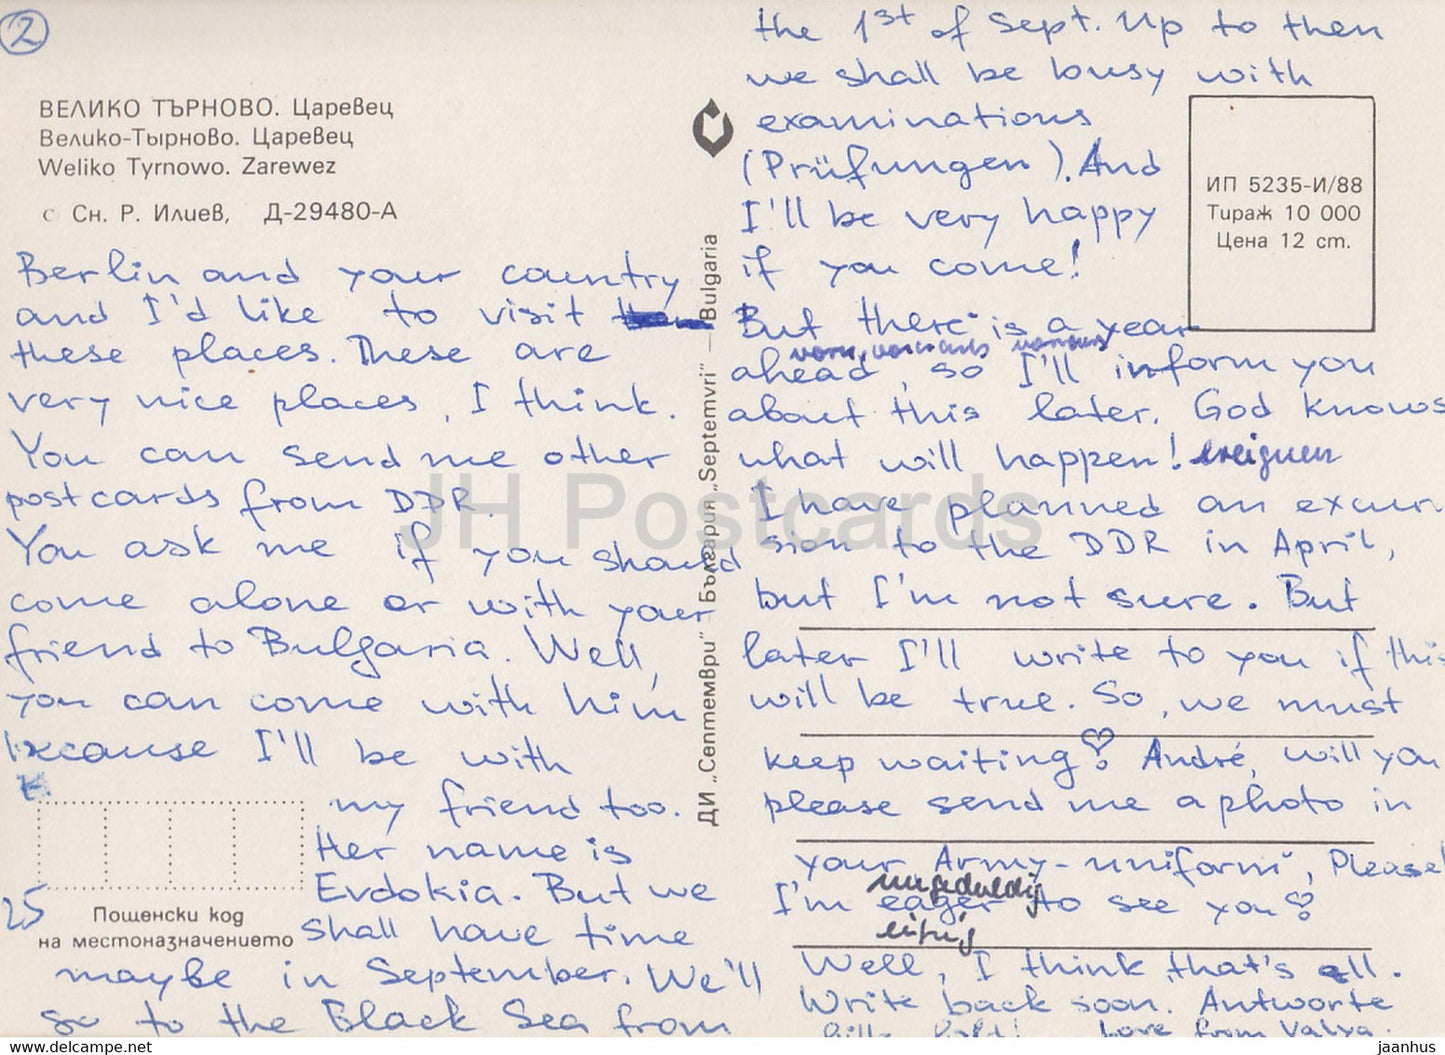 2
ВЕЛИКО ТЪРНОВО. Царевец
Велико-Тырново. Царевец
Weliko Tyrnowo. Zarewez
с Сн. Р. Илиев, Д-29480-А
Berlin and your country
and I'd like to visit
these places. These are
very nice places, I think.
You can send me other
postcards from DDR.
You ask me if you should
come alone or with your
friend to Bulgaria. Well,
you can come with him
because I'll be with
my friend too.
Her name is
Evdokia. But we
shall have time
maybe in September. We'll
go to the Black Sea from
25
Пощенски код
на местоназначението
ДИ „Септември" България „Septemvri" — Bulgaria
the 1st of Sept. Up to then
we shall be busy with
examinations
(Prüfungen). And
I'll be very happy
if you come!
But there is a year
ahead, so I'll inform you
about this later. God knows
what will happen! ereignen
I have planned an excur
sion to the DDR in April,
but I'm not sure. But
later I'll write to you if this
will be true. So, we must
keep waiting! André, will you
please send me a photo in
your Army-uniform, Please!
ungeduldig
I'm eager to see you!
eifrig
Well, I think that's all.
Write back soon. Antworte
Love from Valya.
ИП 5235-И/88
Тираж 10 000
Цена 12 ст.
JH Postcards
www.delcampe.net
jaanhus